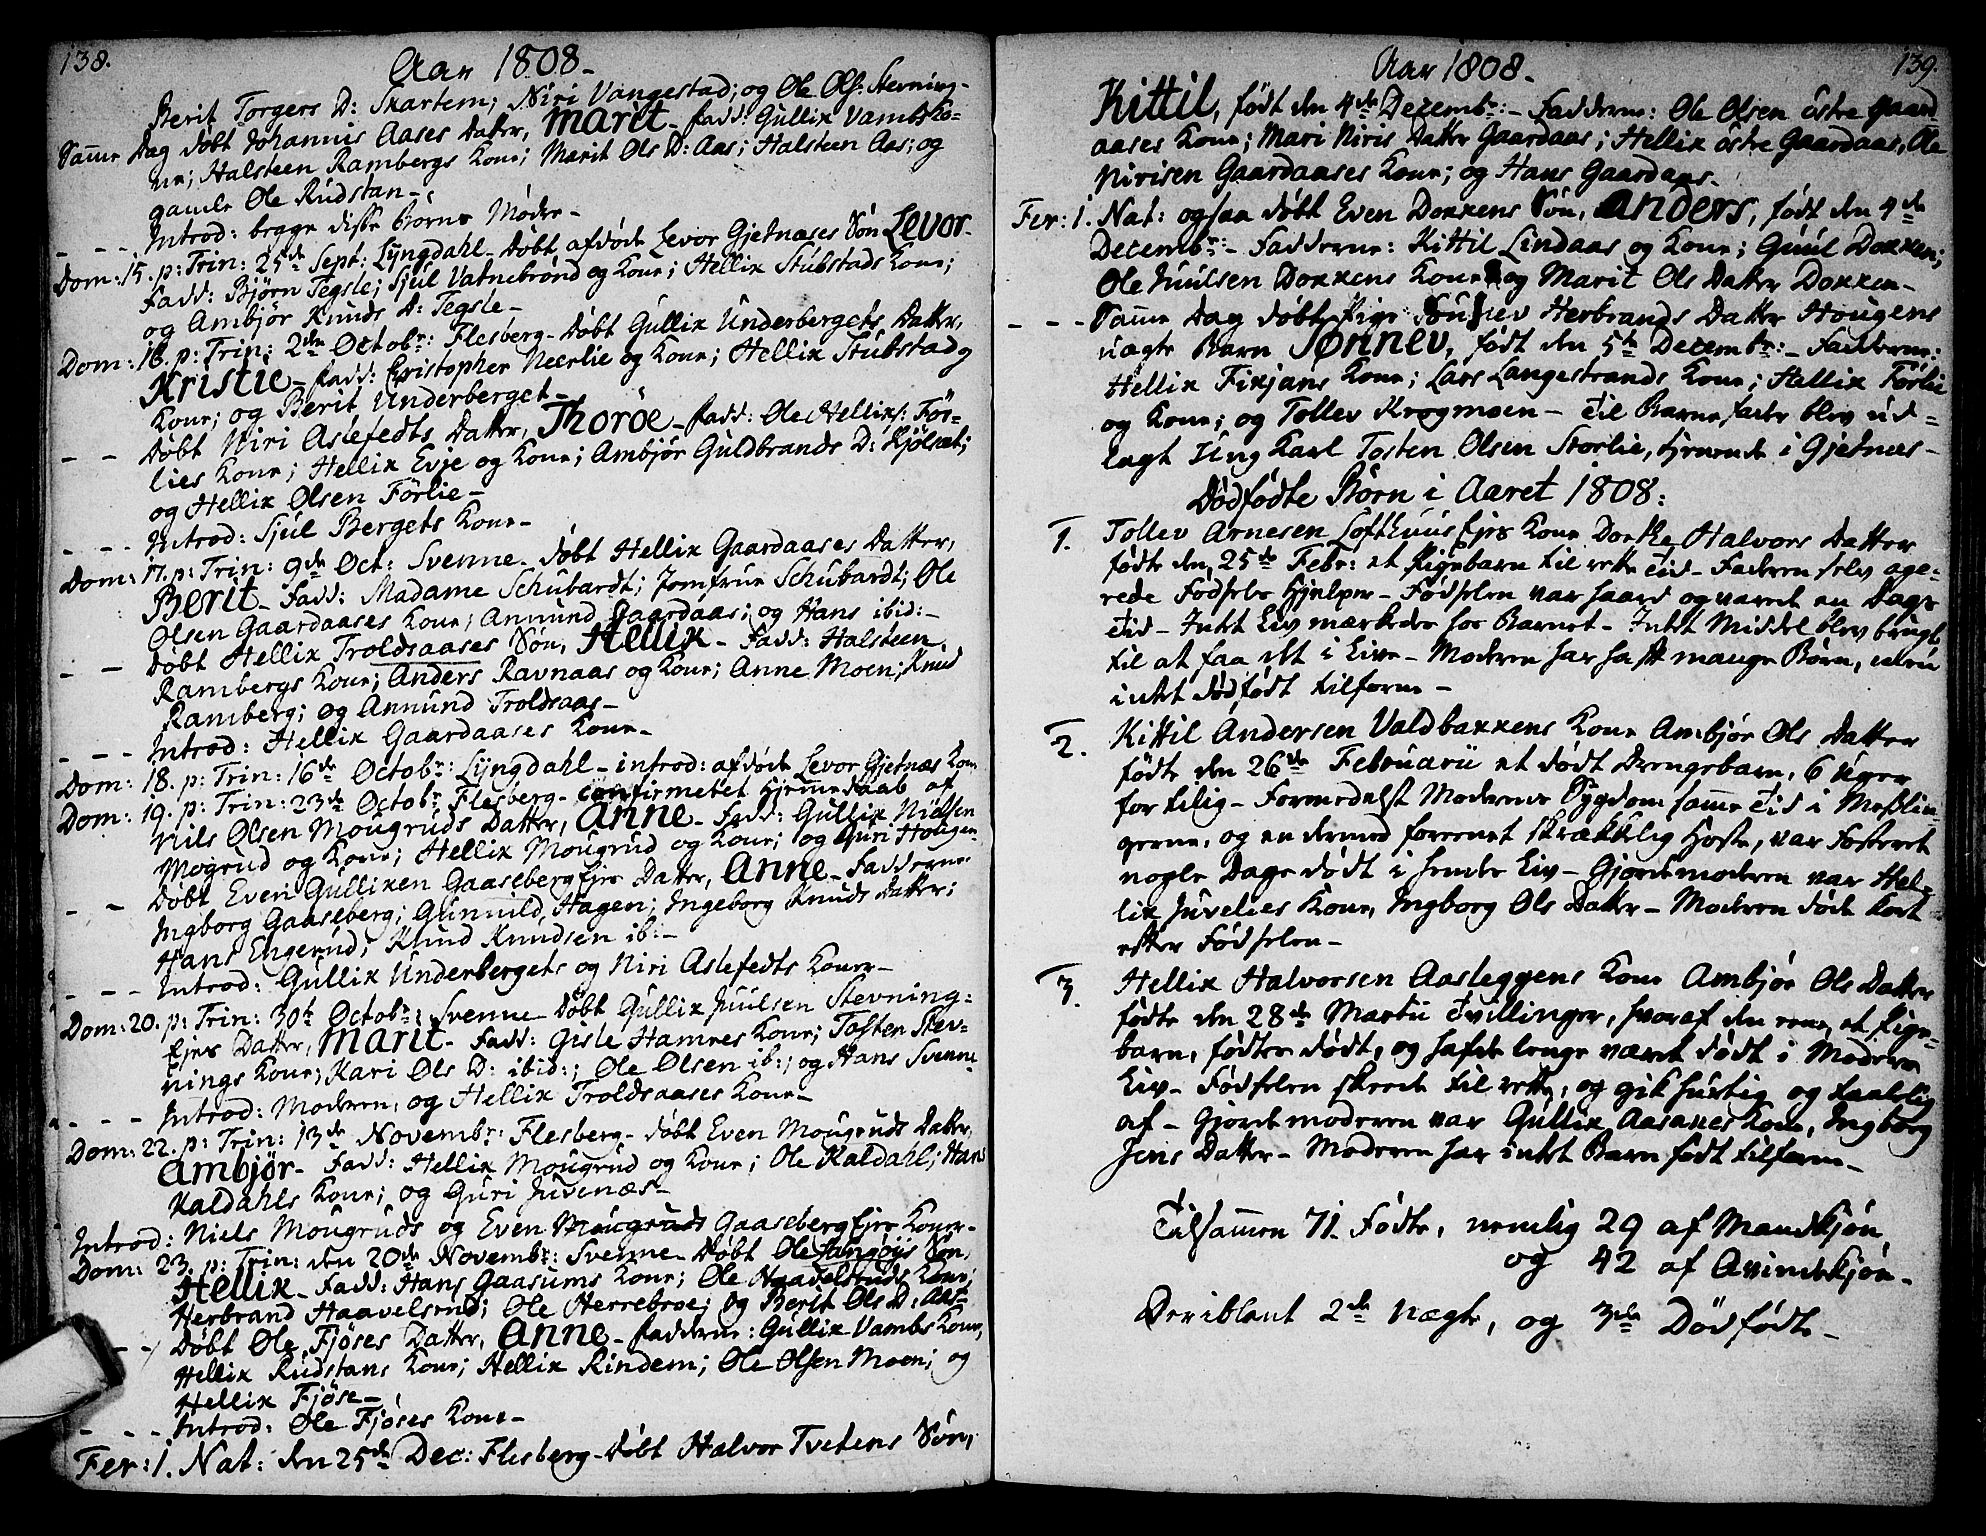 138.
Aar 1808.
Berit Torgers D: Skartem; Niri Vangestad; og Ole Ols: Stevning-
Samme Dag døbt Johannis Aases Datter, Marit - Fadd: Gullik Vambs Ko-
ne; Halsteen Rambergs Kone; Marit Ols D: Aas; Halsteen Aas; og
gamle Ole Rudstan -
- - - Introd: begge disse Børns Mødre -
Dom: 15. p: Trin: 25de Sept: Lyngdahl - Døbt afdøde Levor Gjetnæses Søn Levor -
Fadd: Bjørn Tegsle; Sjul Vatnebrønd og Kone; Hellik Stubstads Kone;
og Ambjør Knuds D: Tegsle -
Dom: 16. p: Trin: 2den Octobr: Flesberg - Døbt Gullik Underbergets Datter,
Kristie - Fadd: Christopher Neerlie og Kone; Hellik Stubstad og
Kone; og Berit Underberget -
- - Døbt Niri Aslefedts Datter, Thoröe - Fadd: Ole Helliks: För-
lies Kone; Hellik Evje og Kone; Ambjør Guldbrands D: Kjölset;
og Hellik Olsen Förlie -
- - - Introd: Sjul Bergets Kone -
Dom: 17. p: Trin: 9de Oct: Svenne - døbt Hellik Gaardaases Datter,
Berit - Fadd: Madame Schubardt; Jomfrue Schubardt; Ole
Olsen Gaardaases Kone; Annund Gaardaas; og Hans ibid: -
- - Døbt Hellik Troldsaases Søn, Hellik - Fadd: Halsteen
Rambergs Kone; Anders Ravnaas og Kone; Anne Moen; Knud
Ramberg; og Annund Troldsaas -
- - - Introd: Hellik Gaardaases Kone -
Dom: 18. p: Trin: 16de Octobr: Lyngdahl - introd: afdøde Levor Gjetnæs Kone
Dom: 19. p: Trin: 23de Octobr: Flesberg - confirmeret Hjemmedaab af
Nils Olsen Mougruds Datter, Anne - Fadd: Gullik Nielsen
Mogrud og Kone; Hellik Mougrud og Kone; og Guri Hougen
- - Døbt Even Gulliksen Gaasebergejes Datter, Anne - Fadderne
Ingborg Gaaseberg; Gunnild Hagen; Ingeborg Knuds Datter;
Hans Engerud; Knud Knudsen ib: -
- - - Introd: Gullik Underbergets og Niri Aslefedts Koner -
Dom: 20. p: Trin: 30te Octobr: Svenne - Døbt Gullik Juulsen Stevning-
Ejes Datter, Marit - Fadd: Gisle Hamres Kone; Tosten Stev-
nings Kone; Kari Ols D: ibid:; Ole Olsen ib:; og Hans Svenne
- - - Introd: Moderen, og Hellik Troldsaases Kone -
Dom: 22. p: Trin: 13de Novembr: Flesberg - døbt Even Mougruds Datter,
Ambjør - Fadd: Hellik Mougrud og Kone; Ole Kaldahl; Hans
Kaldahls Kone; og Guri Juvenæs -
Introd: Niels Mougruds og Even Mougruds Gaasebergejes Koner -
Dom: 23. p: Trin: den 20de Novembr: Svenne - Døbt Ole Langöÿs Søn,
Hellik - Fadd: Hans Gaasums Kone; Ole Haavelsruds Kone;
Herbrand Haavelsrud; Ole Herrebroe; og Berit Ols D: Aas -
- - Døbt Ole Fjøses Datter, Anne - Fadderne: Gullik Vambs Kone,
Hellik Rudstans Kone; Hellik Rindem; Ole Olsen Moen; og
Hellik Fjöse -
- - - Introd: Ole Fjöses Kone -
Fer: 1. Nat: den 25de Dec: Flesberg - døbt Halvor Tvetens Søn,
139.
Aar 1808.
Kittil, født den 4de Decembr: - Fadderne: Ole Olsen östre Gaard-
aases Kone; Mari Niris Datter Gaardaas; Hellik östre Gaardaas, Ole
Nirisen Gaardaases Kone; og Hans Gaardaas.
Fer: 1. Nat: ogsaa døbt Even Dokkens Søn, Anders, født den 4de
Decembr: - Fadderne: Kittil Lindaas og Kone; Guul Dokken;
Ole Juulsen Dokkens Kone og Marit Ols Datter Dokken -
- - - Samme Dag døbt Pige Herbrands Datter Hougens
uægte Barn Sønnev, født den 5te Decembr: - Fadderne:
Hellik Fikjans Kone; Lars Langestrands Kone; Hellik Förlie
og Kone; og Tollev Krogmoen - Til Barnefader blev ud-
lagt Ung Karl Tosten Olsen Storlie, tjenende i Gjetnæs -
Dødfødte Börn i Aaret 1808:
1. Tollev Arnesen Lofthuusejes Kone Dorthe Halvors Datter
fødte den 25de Febr: et Pigebarn til rette Tid - Faderen selv age-
rede Fødsels Hjelper - Fødselen var haard og varet en Dags
Tid - Intet Liv mærkedes hos Barnet - Intet Middel blev brugt
til at faae det i Live - Moderen har havt mange Børn, men
intet dødfødt tilforn -
2. Kittil Andersen Valdbakkens Kone Ambjør Ols Datter
fødte den 26de Februarii et dødt Drengebarn, 6 Uger
for tilig - Formedelst Moderens Sygdom samme Tid i Meslin-
gerne, og en dermed forenet skrækkelig Hoste, var Fosteret
nogle Dage dødt i hendes Liv - Gjordemoderen var Hel-
lik Juvelies Kone, Ingborg Ols Datter - Moderen døde kort
efter Födselen -
3. Hellik Halvorsen Aasleggens Kone Ambjør Ols Datter
fødte den 28de Martii Tvillinger, hvoraf den eene, et Pige-
barn, fødtes dødt, og hafde lenge været dødt i Moderens
Liv - Fødselen skeede til rette, og gik hurtig og taalelig
af - Gjordemoderen var Gullik Aasanes Kone, Ingborg
Jens Datter - Moderen har intet Barn født tilforn -
Tilsammen 71 Fødte, nemlig 29 af Mandkjön,
og 42 af Qvindekjön -
Deriblant 2de uægte, og 3de Dödfødte -